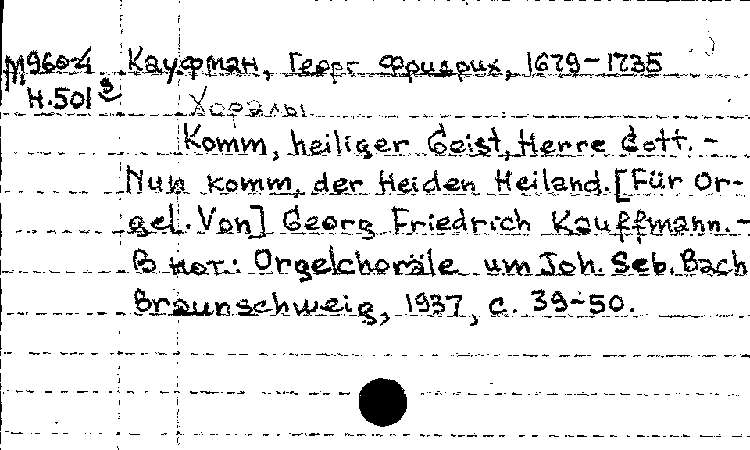 М960-4 Кауфман, Георг Фридрих, 1679-1735
Н.501 э
Хоралы
Komm, heiliger Geist, Herre Gott. -
Nun komm, der Heiden Heiland. [Für Or-
gel. Von] Georg Friedrich Kauffmann. -
В нот.: Orgelchoräle um Joh. Seb. Bach
Braunschweig, 1937, с. 39-50.